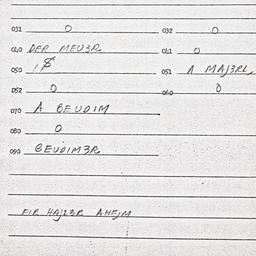 031 0 032 0
040 DER MEU3R 041 0
050 1$ 051 A MAJ3RL
052 0 060 0
070 A BEUDIM
080 0
090 BEUDIM3R
EIR HAJ23R AHEIM